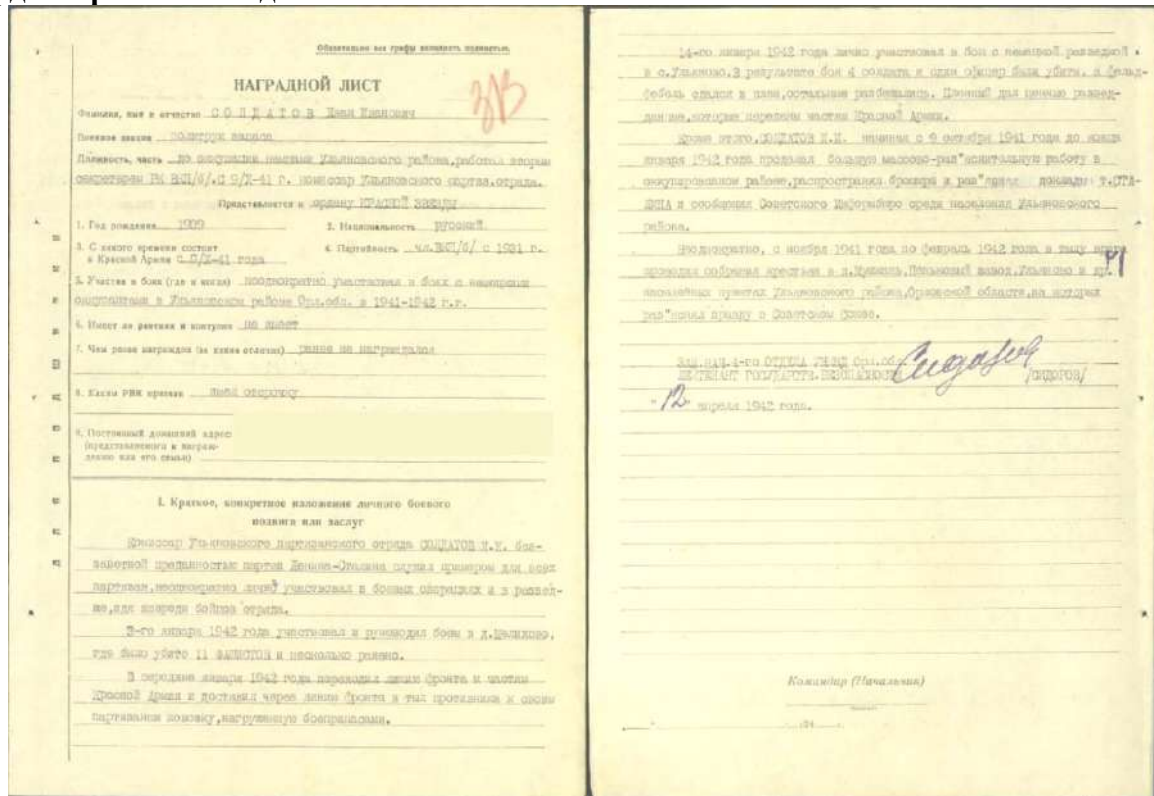 Обязательно все графы заполнять полностью.
НАГРАДНОЙ ЛИСТ
Фамилия, имя и отчество СОЛДАТОВ Иван Иванович
Военное звание политрук запаса
Должность, часть до оккупации немцами Ульяновского района, работал вторым
секретарем РК ВКП/б/. С 9/X-41 г. комиссар Ульяновского партиз. отряда.
Представляется к ордену КРАСНОЙ ЗВЕЗДЫ
1. Год рождения 1909 2. Национальность русский
3. С какого времени состоит в Красной Армии с 9/X-41 года 4. Партийность чл. ВКП/б/ с 1931 г.
5. Участие в боях (где и когда) неоднократно участвовал в боях с немецкими
оккупантами в Ульяновском районе Орл. обл. в 1941-1942 г.г.
6. Имеет ли ранения и контузии не имеет
7. Чем ранее награжден (за какие отличия) ранее не награждался
8. Каким РВК призван имел отсрочку
9. Постоянный домашний адрес
(представляемого к награж-
дению или его семьи)
I. Краткое, конкретное изложение личного боевого
подвига или заслуг
Комиссар Ульяновского партизанского отряда СОЛДАТОВ И.И. без-
заветной преданностью партии Ленина-Сталина служил примером для всех
партизан, неоднократно лично участвовал в боевых операциях и в развед-
ке, идя впереди бойцов отряда.
3-го января 1942 года участвовал и руководил боем в д.
где было убито 11 фашистов и несколько ранено.
В середине января 1942 года переходил линию фронта к частям
Красной Армии и доставил через линию фронта в тыл противника к своим
партизанам повозку, нагруженную боеприпасами.
14-го января 1942 года лично участвовал в бою с немецкой разведкой
в с. Ульяново. В результате боя 4 солдата и один офицер были убиты, а фельд-
фебель сдался в плен, остальные разбежались. Пленный дал ценные развед-
данные, которые переданы частям Красной Армии.
Кроме этого, СОЛДАТОВ И.И. начиная с 9 октября 1941 года до конца
января 1942 года проделал большую массово-раз"яснительную работу в
оккупированном районе, распространял брошюры и раз"яснял доклады т. СТА-
ЛИНА и сообщения Советского Информбюро среди населения Ульяновского
района.
Неоднократно, с ноября 1941 года по февраль 1942 года в тылу врага
проводил собрания крестьян в д. завод, Ульяново и др.
населенных пунктах Ульяновского района, Орловской области, на которых
раз"яснял правду о Советском Союзе.
ЗАМ. НАЧ. 4-го ОТДЕЛА УНКВД Орл. обл.
ЛЕЙТЕНАНТ ГОСУДАРСТВ. БЕЗОПАСНОСТИ Сидоров /СИДОРОВ/
"12" апреля 1942 года.
Командир (Начальник)